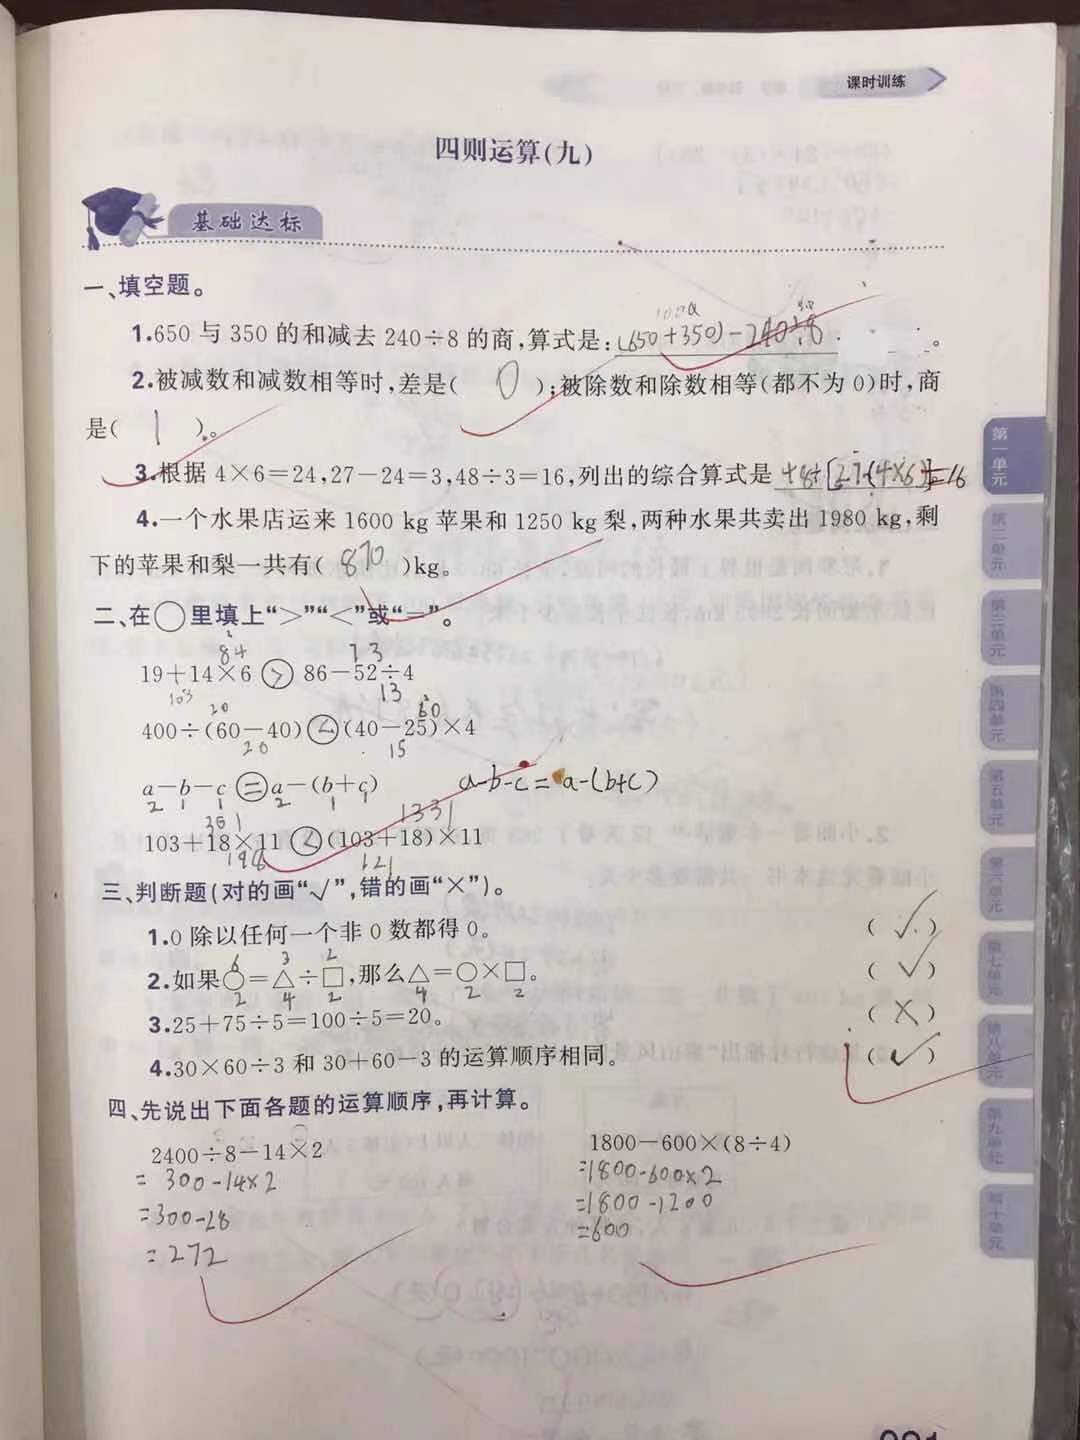 课时训练
四则运算(九)
基础达标
一、填空题。
1.650与350的和减去240÷8的商,算式是:(650+350)-240÷8。
2.被减数和减数相等时,差是( 0 );被除数和除数相等(都不为0)时,商
是( 1 )。
3.根据4×6=24,27-24=3,48÷3=16,列出的综合算式是 48÷[27-(4×6)]=16
4.一个水果店运来1600 kg苹果和1250 kg梨,两种水果共卖出1980 kg,剩
下的苹果和梨一共有( 870 )kg。
二、在○里填上“>”“<”或“=”。
84 73
19+14×6 > 86-52÷4
103 13
20 60
400÷(60-40) < (40-25)×4
20 15
a-b-c = a-(b+c) a-b-c=a-(b+c)
2 1 1 2 1 1
301 1331
103+18×11 < (103+18)×11
198 121
三、判断题(对的画“√”,错的画“×”)。
1.0除以任何一个非0数都得0。 ( √ )
2.如果○=△÷□,那么△=○×□。 ( √ )
2 4 2 4 2 2
3.25+75÷5=100÷5=20。 ( × )
4.30×60÷3和30+60-3的运算顺序相同。 ( √ )
四、先说出下面各题的运算顺序,再计算。
2400÷8-14×2 1800-600×(8÷4)
=300-14×2 =1800-600×2
=300-28 =1800-1200
=272 =600
第一单元
第二单元
第三单元
第四单元
第五单元
第六单元
第七单元
第八单元
第九单元
第十单元